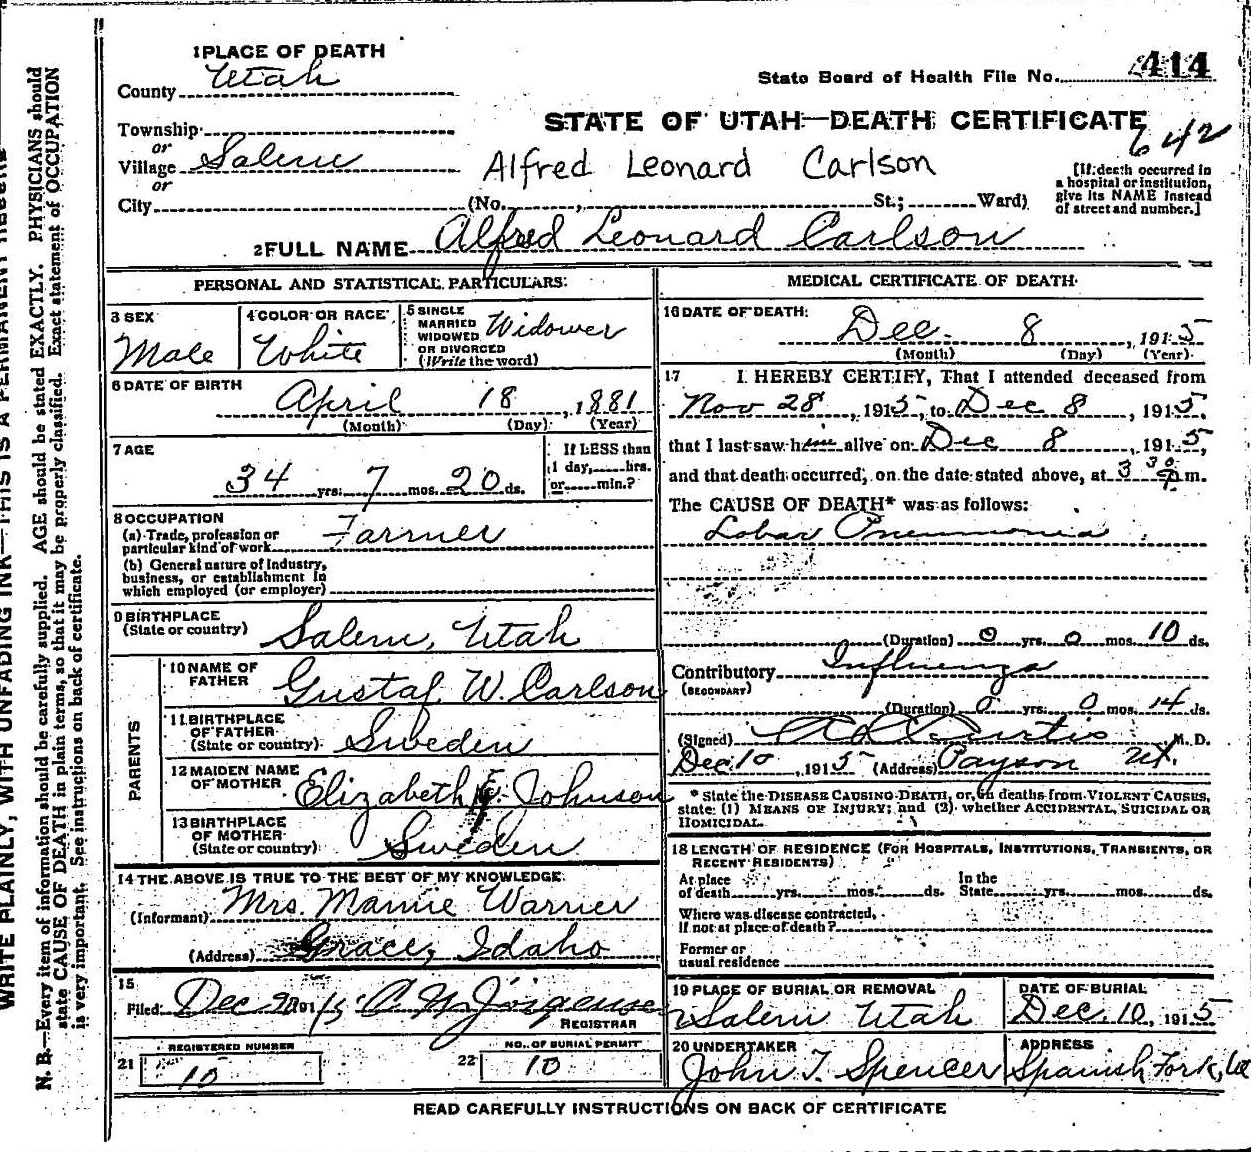 1 PLACE OF DEATH
County Utah
State Board of Health File No. 414
Township
or
Village Salem
or
City (No. , St.; Ward)
STATE OF UTAH—DEATH CERTIFICATE
642
Alfred Leonard Carlson
[If death occurred in
a hospital or institution,
give its NAME instead
of street and number.]
2 FULL NAME Alfred Leonard Carlson
PERSONAL AND STATISTICAL PARTICULARS
3 SEX
Male
4 COLOR OR RACE
White
5 SINGLE
MARRIED
WIDOWED
OR DIVORCED
(Write the word)
Widower
6 DATE OF BIRTH
April 18, 1881
(Month) (Day) (Year)
7 AGE
34 yrs. 7 mos. 20 ds.
If LESS than
1 day, hrs.
or min.?
8 OCCUPATION
(a) Trade, profession or
particular kind of work Farmer
(b) General nature of Industry,
business, or establishment in
which employed (or employer)
9 BIRTHPLACE
(State or country) Salem, Utah
PARENTS
10 NAME OF
FATHER Gustaf W. Carlson
11 BIRTHPLACE
OF FATHER
(State or country) Sweden
12 MAIDEN NAME
OF MOTHER Elizabeth Johnson
13 BIRTHPLACE
OF MOTHER
(State or country) Sweden
14 THE ABOVE IS TRUE TO THE BEST OF MY KNOWLEDGE
(Informant) Mrs. Mamie Warner
(Address) Grace, Idaho
15
Filed Dec 191
REGISTRAR
REGISTERED NUMBER
21 10
NO. OF BURIAL PERMIT
22 10
MEDICAL CERTIFICATE OF DEATH
16 DATE OF DEATH
Dec. 8, 1915
(Month) (Day) (Year)
17 I HEREBY CERTIFY, That I attended deceased from
Nov 28, 1915, to Dec 8, 1915,
that I last saw him alive on Dec 8, 1915,
and that death occurred, on the date stated above, at 3 30 p m.
The CAUSE OF DEATH* was as follows:
Lobar Pneumonia
(Duration) 0 yrs. 0 mos. 10 ds.
Contributory Influenza
(SECONDARY)
(Duration) 0 yrs. 0 mos. 14 ds.
(Signed) Curtis M. D.
Dec. 10, 1915 (Address) Payson Ut.
* State the DISEASE CAUSING DEATH, or, in deaths from VIOLENT CAUSES,
state (1) MEANS OF INJURY; and (2) whether ACCIDENTAL, SUICIDAL OR
HOMICIDAL.
18 LENGTH OF RESIDENCE (FOR HOSPITALS, INSTITUTIONS, TRANSIENTS, OR
RECENT RESIDENTS)
At place In the
of death yrs. mos. ds. State yrs. mos. ds.
Where was disease contracted,
If not at place of death?
Former or
usual residence
19 PLACE OF BURIAL OR REMOVAL
Salem Utah
DATE OF BURIAL
Dec. 10, 1915
20 UNDERTAKER
John T. Spencer
ADDRESS
Spanish Fork,
READ CAREFULLY INSTRUCTIONS ON BACK OF CERTIFICATE
WRITE PLAINLY, WITH UNFADING INK—THIS IS A PERMANENT RECORD
N. B.—Every item of information should be carefully supplied. AGE should be stated EXACTLY. PHYSICIANS should
state CAUSE OF DEATH in plain terms, so that it may be properly classified. Exact statement of OCCUPATION
is very important. See instructions on back of certificate.